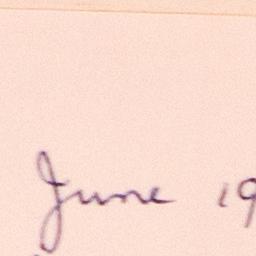 June 19